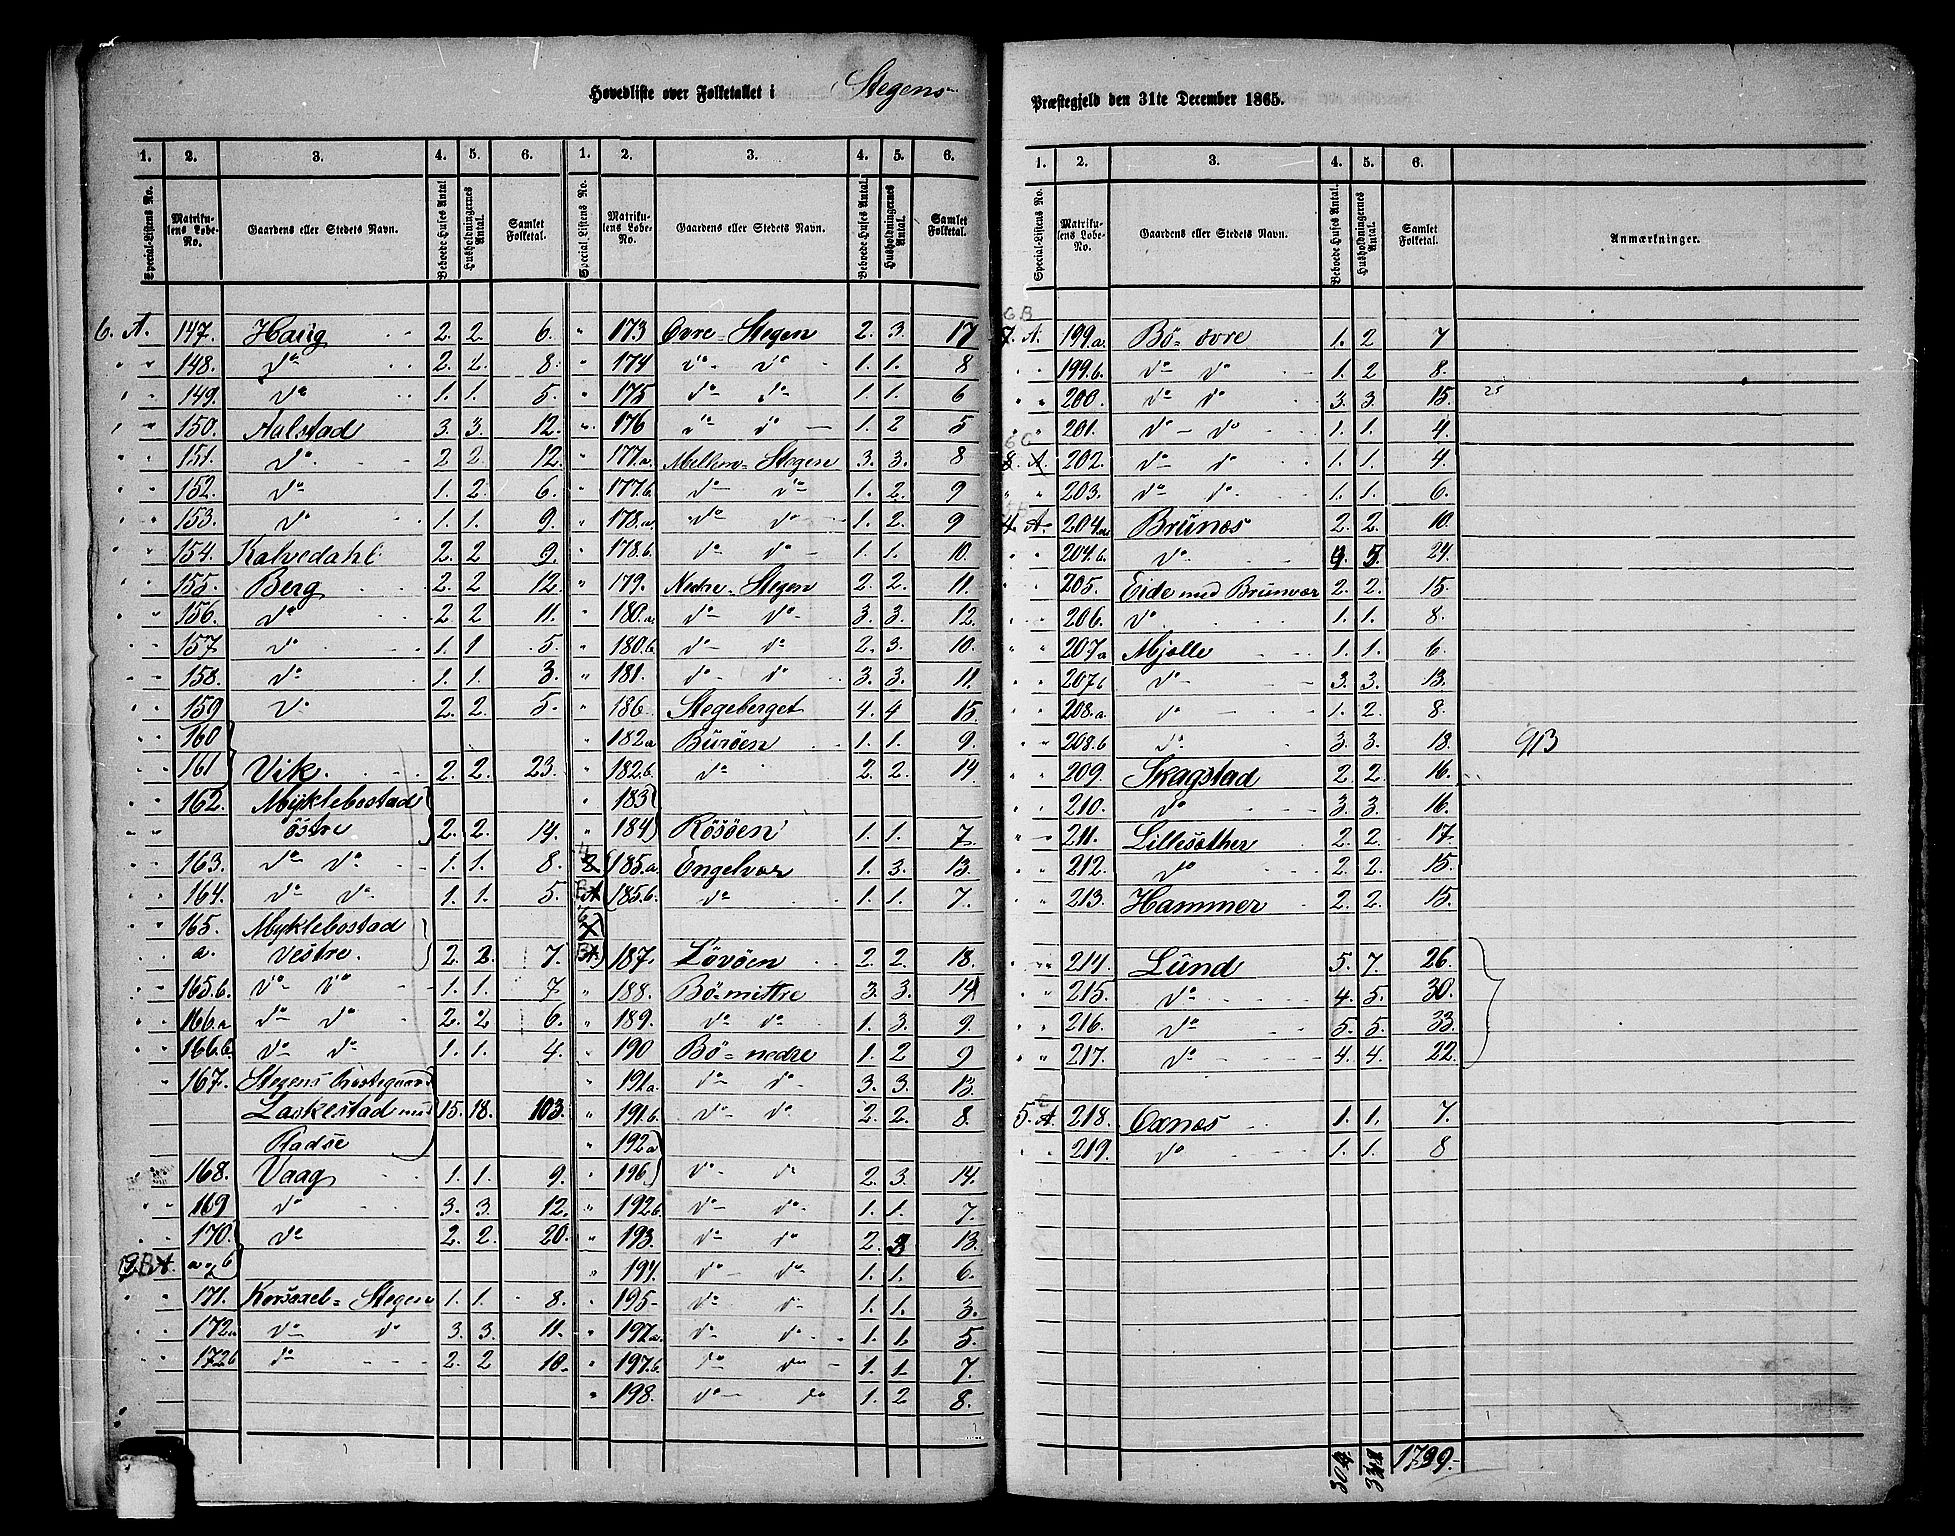 Hovedliste over Folketallet i Stegens
Præstegjeld den 31te December 1865.
1. 2. 3. 4. 5. 6. 1. 2. 3. 4. 5. 6.
Special-Listens No. Matrikulens Løbe-No. Gaardens eller Stedets Navn. Beboede Huses Antal Husholdningernes Antal. Samlet Folketal. Special-Listens No. Matrikulens Løbe-No. Gaardens eller Stedets Navn. Beboede Huses Antal. Husholdningernes Antal. Samlet Folketal.
6. A. 147. Haug 2. 2. 6.
" " 148. do 2. 2. 8.
" " 149. do 1. 1. 5.
" " 150. Aalstad 3. 3. 12.
" " 151. do 2. 2. 12.
" " 152. do 1. 2. 6.
" " 153. do 1. 1. 9.
" " 154. Kalvedahl 2. 2 9.
" " 155. Berg 2. 2 12.
" " 156. do 2. 2 11.
" " 157. do 1. 1 5.
" " 158. do 1. 1. 3.
" " 159 do 2. 2. 5.
" " 160
" " 161 Vik. 2. 2. 23.
" " 162. Myklebostad
østre 2. 2. 14.
" " 163. do do 1. 1. 8.
" " 164. do do 1. 1. 5.
" " 165. Myklebostad
a. vestre. 2. 2. 7.
" " 165.b. do do 1. 1. 7
" " 166.a do do 2. 2 6.
" " 166.b do do 1. 1. 4.
" " 167. Stegens Præstegaard
Laskestad med 15. 18. 103.
Radse
168. Vaag 1. 1. 9.
" " 169 do 3. 3. 12.
" " 170. do 2. 2. 20.
a og b
" " 171. Korsaxel-Stegen 1. 1. 8.
" " 172a do do 3. 3. 11.
" " 172b do 2. 2 10.
" 173 Øvre-Stegen 2. 3. 17
" 174 do do 1. 1. 8
" 175 do do 1. 1. 6
" 176 do do 1. 2 5
" 177.a. Mellem-Stegen 3. 3. 8
" 177.b. do do 1. 2. 9
" 178.a. do do 1. 2. 9
" 178.b. do do 1. 1. 10.
" 179. Nedre-Stegen 2. 2. 11.
" 180.a. do do 3. 3. 12.
" 180.b do do 2. 3. 10.
" 181. do do 3. 3. 11.
" 186 Stegeberget 4. 4 15.
" 182a Burøen 1. 1. 9.
" 182.b. do 2. 2. 14
" 183
" 184 Røsøen 1. 1. 7.
185.a Engelvær 1. 3. 13.
185.b. do 1. 1. 7.
187. Løvøen 2. 2. 18.
" 188. Bø-mittre 3. 3. 14
" 189. do do 1. 3. 9.
" 190 Bø-nedre 1. 2 9
" 191a. do do 3. 3. 13.
" 191.b. do do 2. 2. 8.
" 192a
" 196. do do 2. 3. 14.
" 192b. do do 1. 1. 7.
" 193. do do 2. 3 13.
" 194. do do 1. 1. 6.
" 195 do do 1. 1. 3.
" 197.a. do do 1. 1. 5.
" 197.b. do do 1. 1. 7.
" 198. do do 1. 2 8.
1. 2. 3. 4. 5. 6.
Special-Listens No. Matrikulens Løbe-No. Gaardens eller Stedets Navn. Beboede Huses Antal. Husholdningernes Antal. Samlet Folketal. Anmærkninger.
6B
7. A. 199.a. Bø-øvre 1. 2 7
" " 199.b. do do 1. 2 8.
" " 200. do do 3. 3. 15. 25
" " 201. do do 1. 1. 4.
6C
8. A. 202. do do 1. 1. 4.
" " 203. do do 1. 1. 6.
4. A. 204.a. Brunes 2. 2. 10.
" " 204.b. do 4. 5. 24.
" " 205. Eide med Brunvær 2. 2. 15.
" " 206. do 1. 1. 8.
" " 207.a Mjølle 1. 1. 6.
" " 207.b do 3. 3. 13.
" " 208.a. do 1. 2. 8.
" " 208.b do 3. 3. 18. 913
" " 209. Skagstad 2. 2. 16.
" " 210. do 3. 3. 16.
" " 211. Lillesæther 2. 2. 17.
" " 212. do 2. 2. 15.
" " 213. Hammer 2. 2. 15.
" " 214. Lund 5. 7. 26.
" " 215. do 4. 5. 30.
" " 216. do 5. 5. 33.
" " 217. do 4. 4. 22.
5. A. 218. Øxnes 1. 1. 7.
" " 219. do 1. 1. 8
1739.